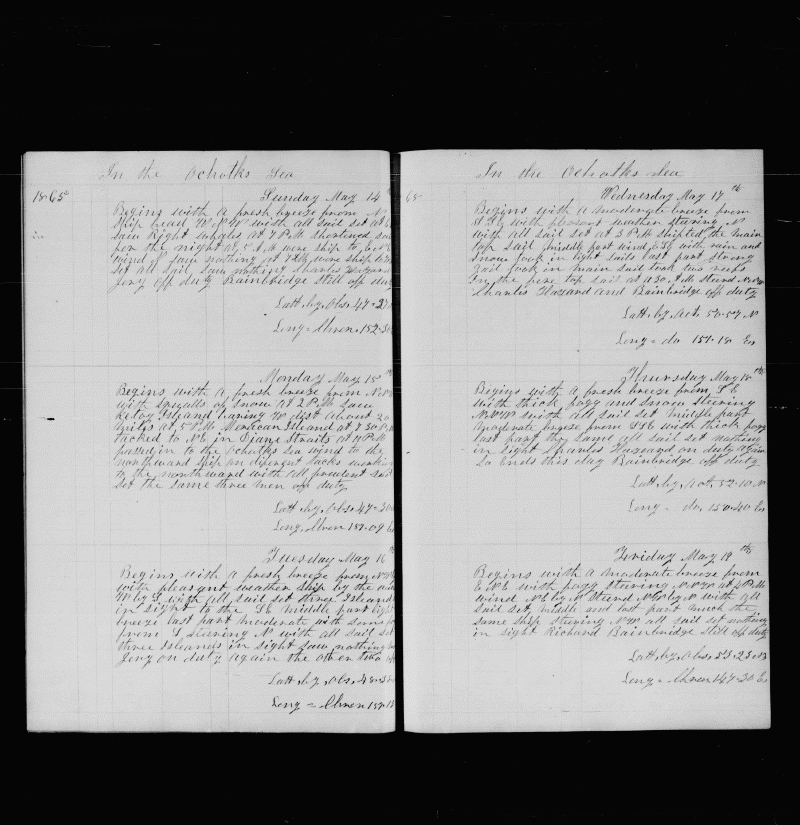 In the Ochotks Sea
1865
Sunday May 14
Begins with a fresh breeze from N
Ship head W.N.W with all sail set at
saw Right whales at 7 P.M shortened sail
for the night at 5 A.M were ship to
wind saw nothing at were ship
set all sail saw nothing Charles Hazzard
Jery off duty Bainbridge still off duty
Latt. by. Obs. 47-
Long = Chron. 152-30
Monday May 15th
Begins with a fresh breeze from
with squalls of snow at 2 P.M saw
Ketoy Island baring W dist about 20
miles at 5 P.M Island at 7 30 P.M
tacked to N.E in Diane Straits at
passed in to the Ochotks Sea wind to the
northward ship on diferent tacks working
to the northward with all prudent sail
set the same three men off duty
Latt by. Obs. 47-30
Long. Chron 151-09 E
Tuesday May 16th
Begins with a fresh breeze from
with pleasant weather ship by the wind
W by S with all sail set three Islands
in sight to the S.E Middle part light
breeze last part moderate with some
from S steering N with all sail set
three Islands in sight saw nothing
Jery on duty again the other two
Latt. by. Obs. 48-
Long = Chron 151-
In the Ochotks Sea
65
Wednesday May 17th
Begins with a moderate breeze from
with pleasant weather stering N
with all sail set at 3 P.M shifted the main
top sail middle part wind ESE with rain and
snow took in light sails last part strong
gail took in main sail took two reefs
In the fore top sail at A.M Steerd
Charles Hazzard and Bainbridge off duty
Latt. by. Act. 50-57 N
Long = do 151-18 Es
Thursday May 18th
Begins with a fresh breeze from S.E
with thick fogg and snow steering
N.N.W with all sail set middle part
moderate breeze from SSE with thick fogg
last part the same all sail set nothing
in sight Charles Hazzard on duty again
So Ends this day Bainbridge off duty
Latt. by. Act. 52-10 N
Long. do. 150-40 Es
Friday May 19th
Begins with a moderate breeze from
E.S.E with fogg stering N.N.W at 4 P.M
wind N.E by N Steerd N.W by N with all
sail set, middle and last part much the
same ship stering N.W all sail set nothing
in sight Richard Bainbridge still off duty
Latt. by. Obs. 53-23 N
Long = Chron 147-30 Es